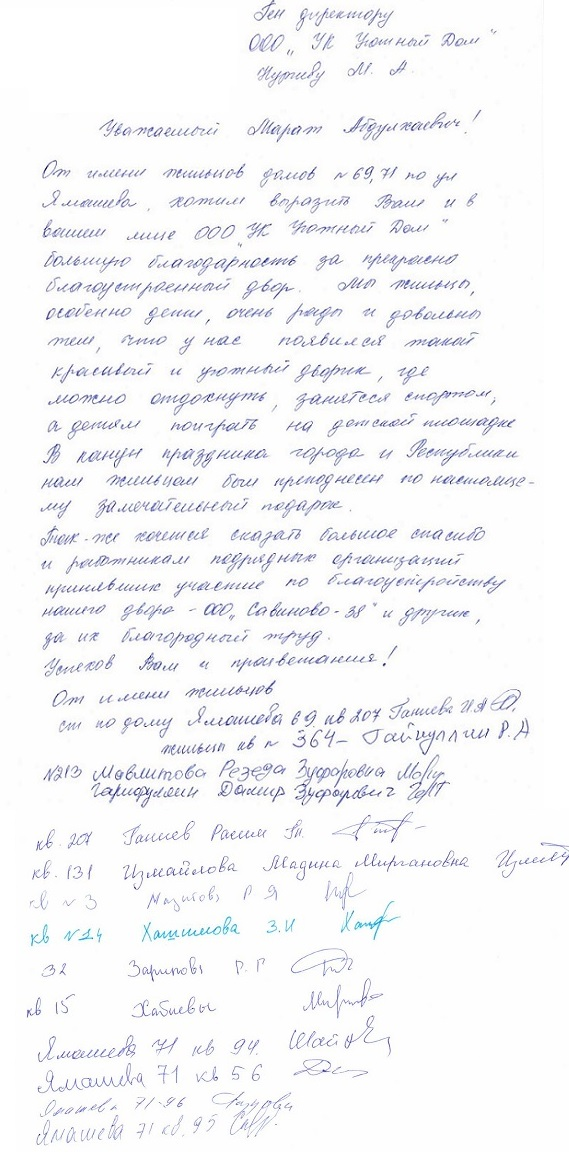 Ген директору
ООО „УК Уютный Дом"
М. А.
Уважаемый Марат Абдулхаевич!
От имени жильцов домов №69,71 по ул
Ямашева, хотим выразить Вам и в
вашем лице ООО „УК Уютный Дом"
большую благодарность за прекрасно
благоустроенный двор. Мы жильцы,
особенно дети, очень рады и довольны
тем, что у нас появился такой
красивый и уютный дворик, где
можно отдохнуть, занятся спортом,
а детям поиграть на детской площадке
В канун праздника города и Республики
нам жильцам был преподнесен по настояще-
му замечательный подарок.
Так-же хочется сказать большое спасибо
и работникам подрядных организаций
принявших участие по благоустройству
нашего двора - ООО „Савиново-38" и других,
за их благородный труд.
Успехов Вам и процветания!
От имени жильцов
ст по дому Ямашева 69 кв 207 Ганиева И.А
жильцы кв № 364 - Гайнуллин Р.А
№213 Мавлитова Резеда Зуфаровна
Гарифуллин Дамир Зуфарович
кв. 207 Ганиев Расим
кв. 131 Измайлова Мадина Миргановна
кв №3 Р Я
кв №14 Хашимова З.И
32 Зарипов Р. Г
кв 15 Хабиевы
Ямашева 71 кв 94.
Ямашева 71 кв 56
Ямашева 71-96
Ямашева 71 кв. 95